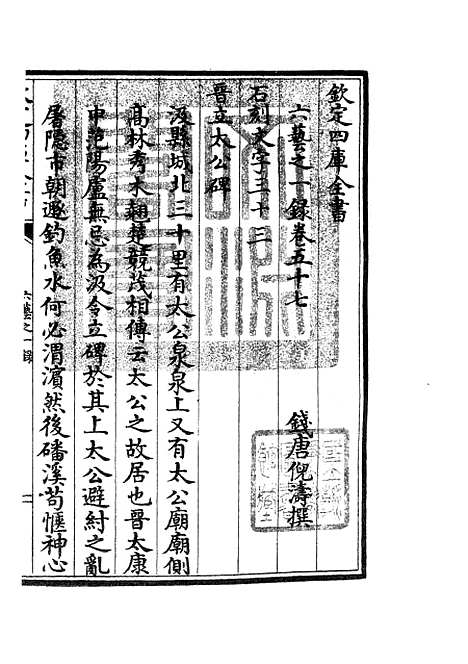 欽定四庫全書
六藝之一錄卷五十七
錢唐倪濤撰
石刻文字三十三
晉立太公碑
汲縣城北三十里有太公泉泉上又有太公廟廟側
高林秀木翹楚競茂相傳云太公之故居也晉太康
中范陽盧無忌為汲令立碑於其上太公避紂之亂
屠隱市朝遯釣魚水何必渭濱然後磻溪苟愜神心
六藝之一錄